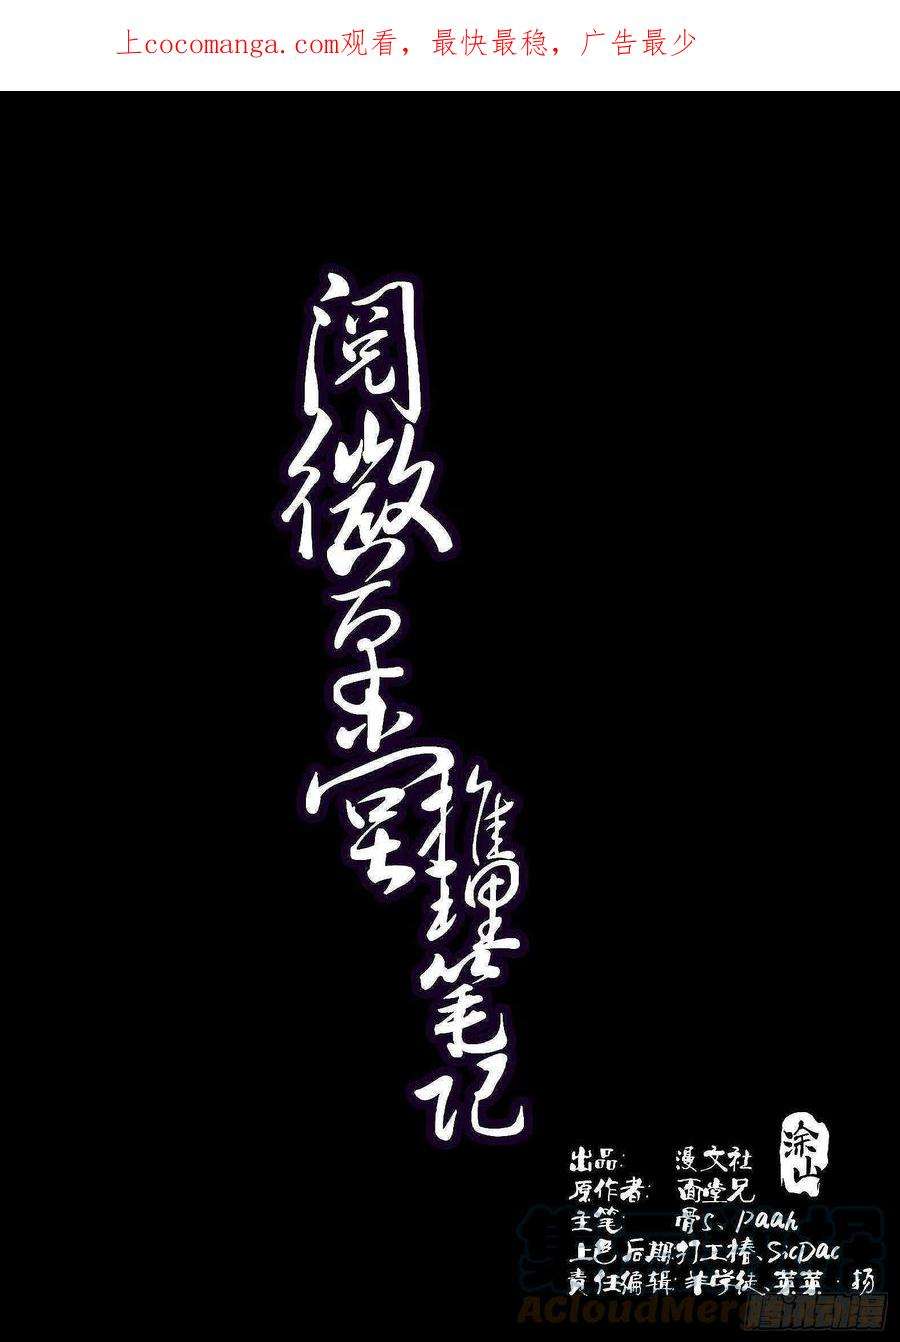 上cocomanga.com观看，最快最稳，广告最少
阅微草堂
笔记
涂山
出品: 漫文社
原作者: 面堂兄
主笔: 骨s、paah
上色后期:打工椿、SicDac
責任编辑:羊学徒、菜菜·扬
ACloudMerge
腾讯动漫